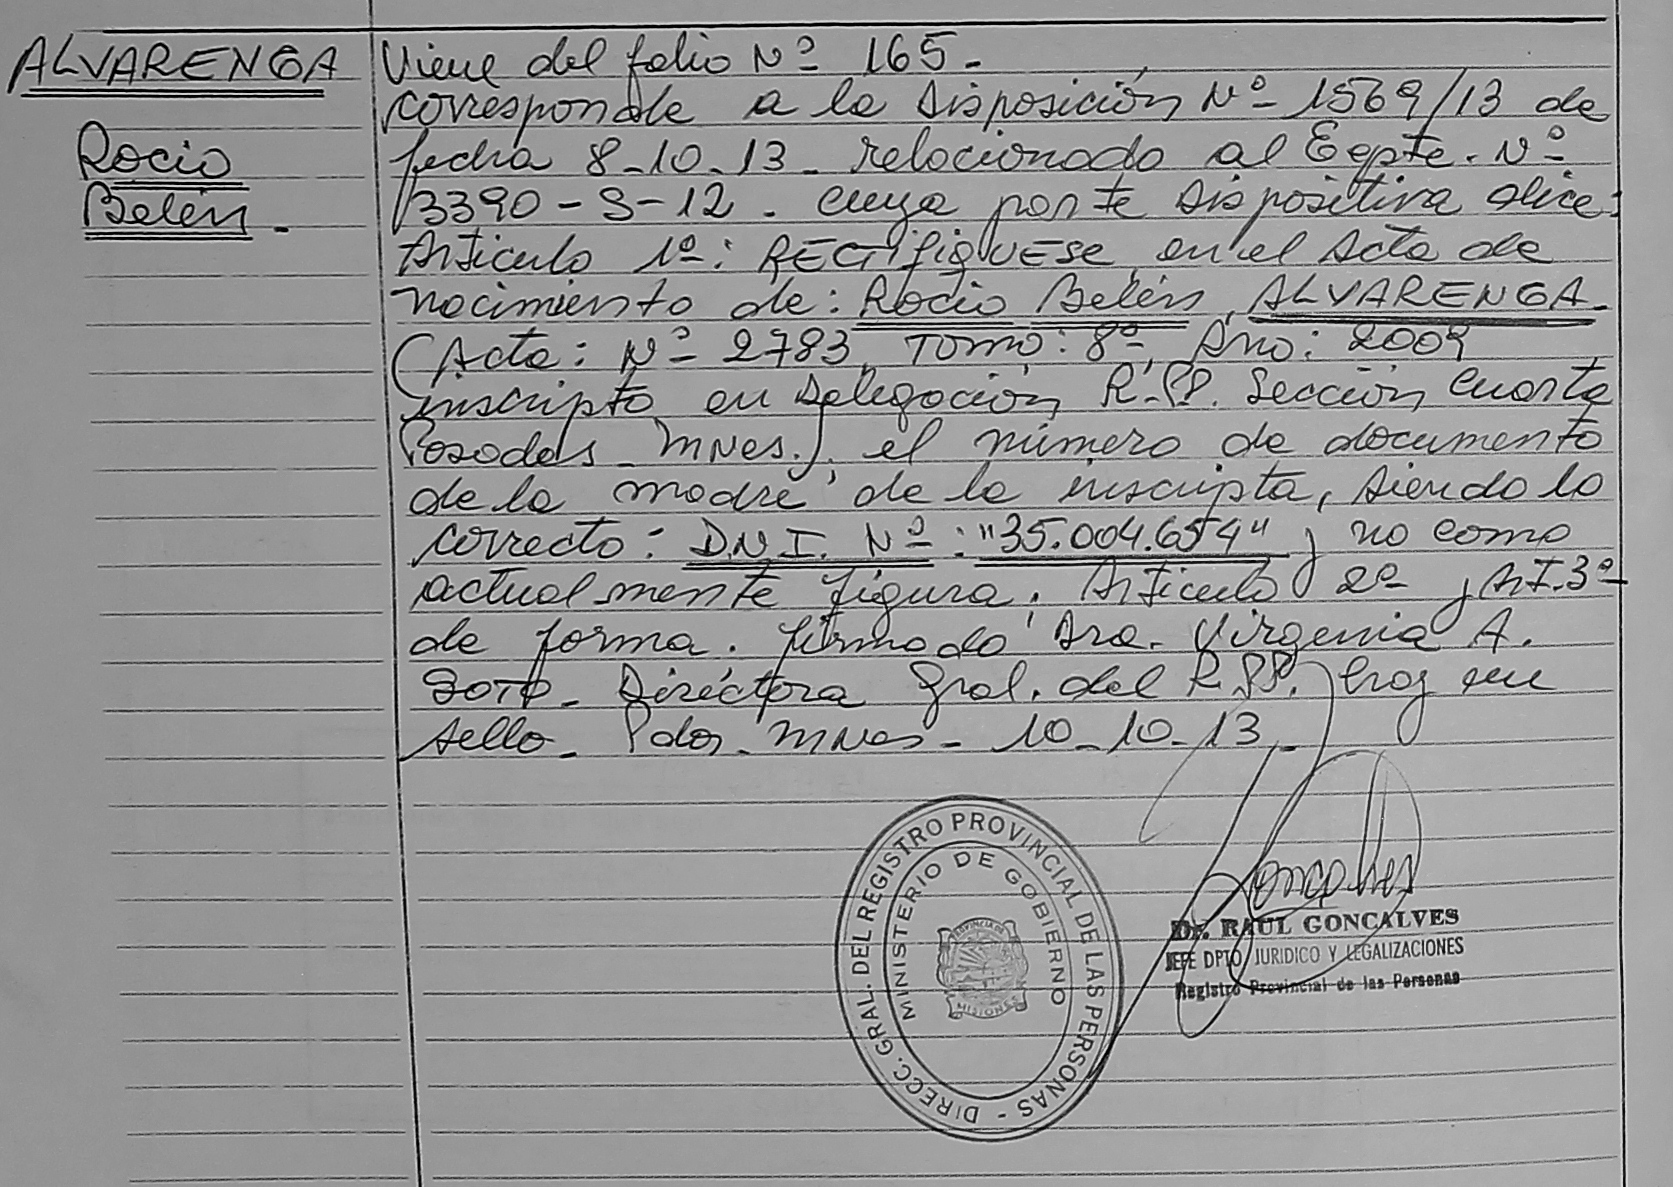 ALVARENGA
Rocio
Belén.-
Viene del folio Nº 165.-
corresponde a la Disposición Nº 1569/13 de
fecha 8-10-13 - relacionado al Eepte. Nº
13390-S-12. cuya parte dispositiva dice:
Articulo 1º: RECTifiqUESE en el Acta de
nacimiento de: Rocio Belén ALVARENGA-
(Acta: Nº 2783, Tomo: 8º, Año: 2009
inscripta en Delegación R.PP. Sección Cuarta
Posadas - Mnes.), el número de documento
de la madre de la inscripta, siendo lo
correcto: D.N.I. Nº: "35.004.654" y no como
actualmente figura. Articulo 2º y Art. 3º
de forma. firmado Dra. Virginia A.
SOTO- Directora Gral. del R.PP. hay un
sello- Pdas- Mnes- 10-10-13.-
DIRECC. GRAL. DEL REGISTRO PROVINCIAL DE LAS PERSONAS -
MINISTERIO DE GOBIERNO
PROVINCIA DE
MISIONES
Goncalves
Dr. RAUL GONCALVES
JEFE DPTO JURIDICO Y LEGALIZACIONES
Registro Provincial de las Personas